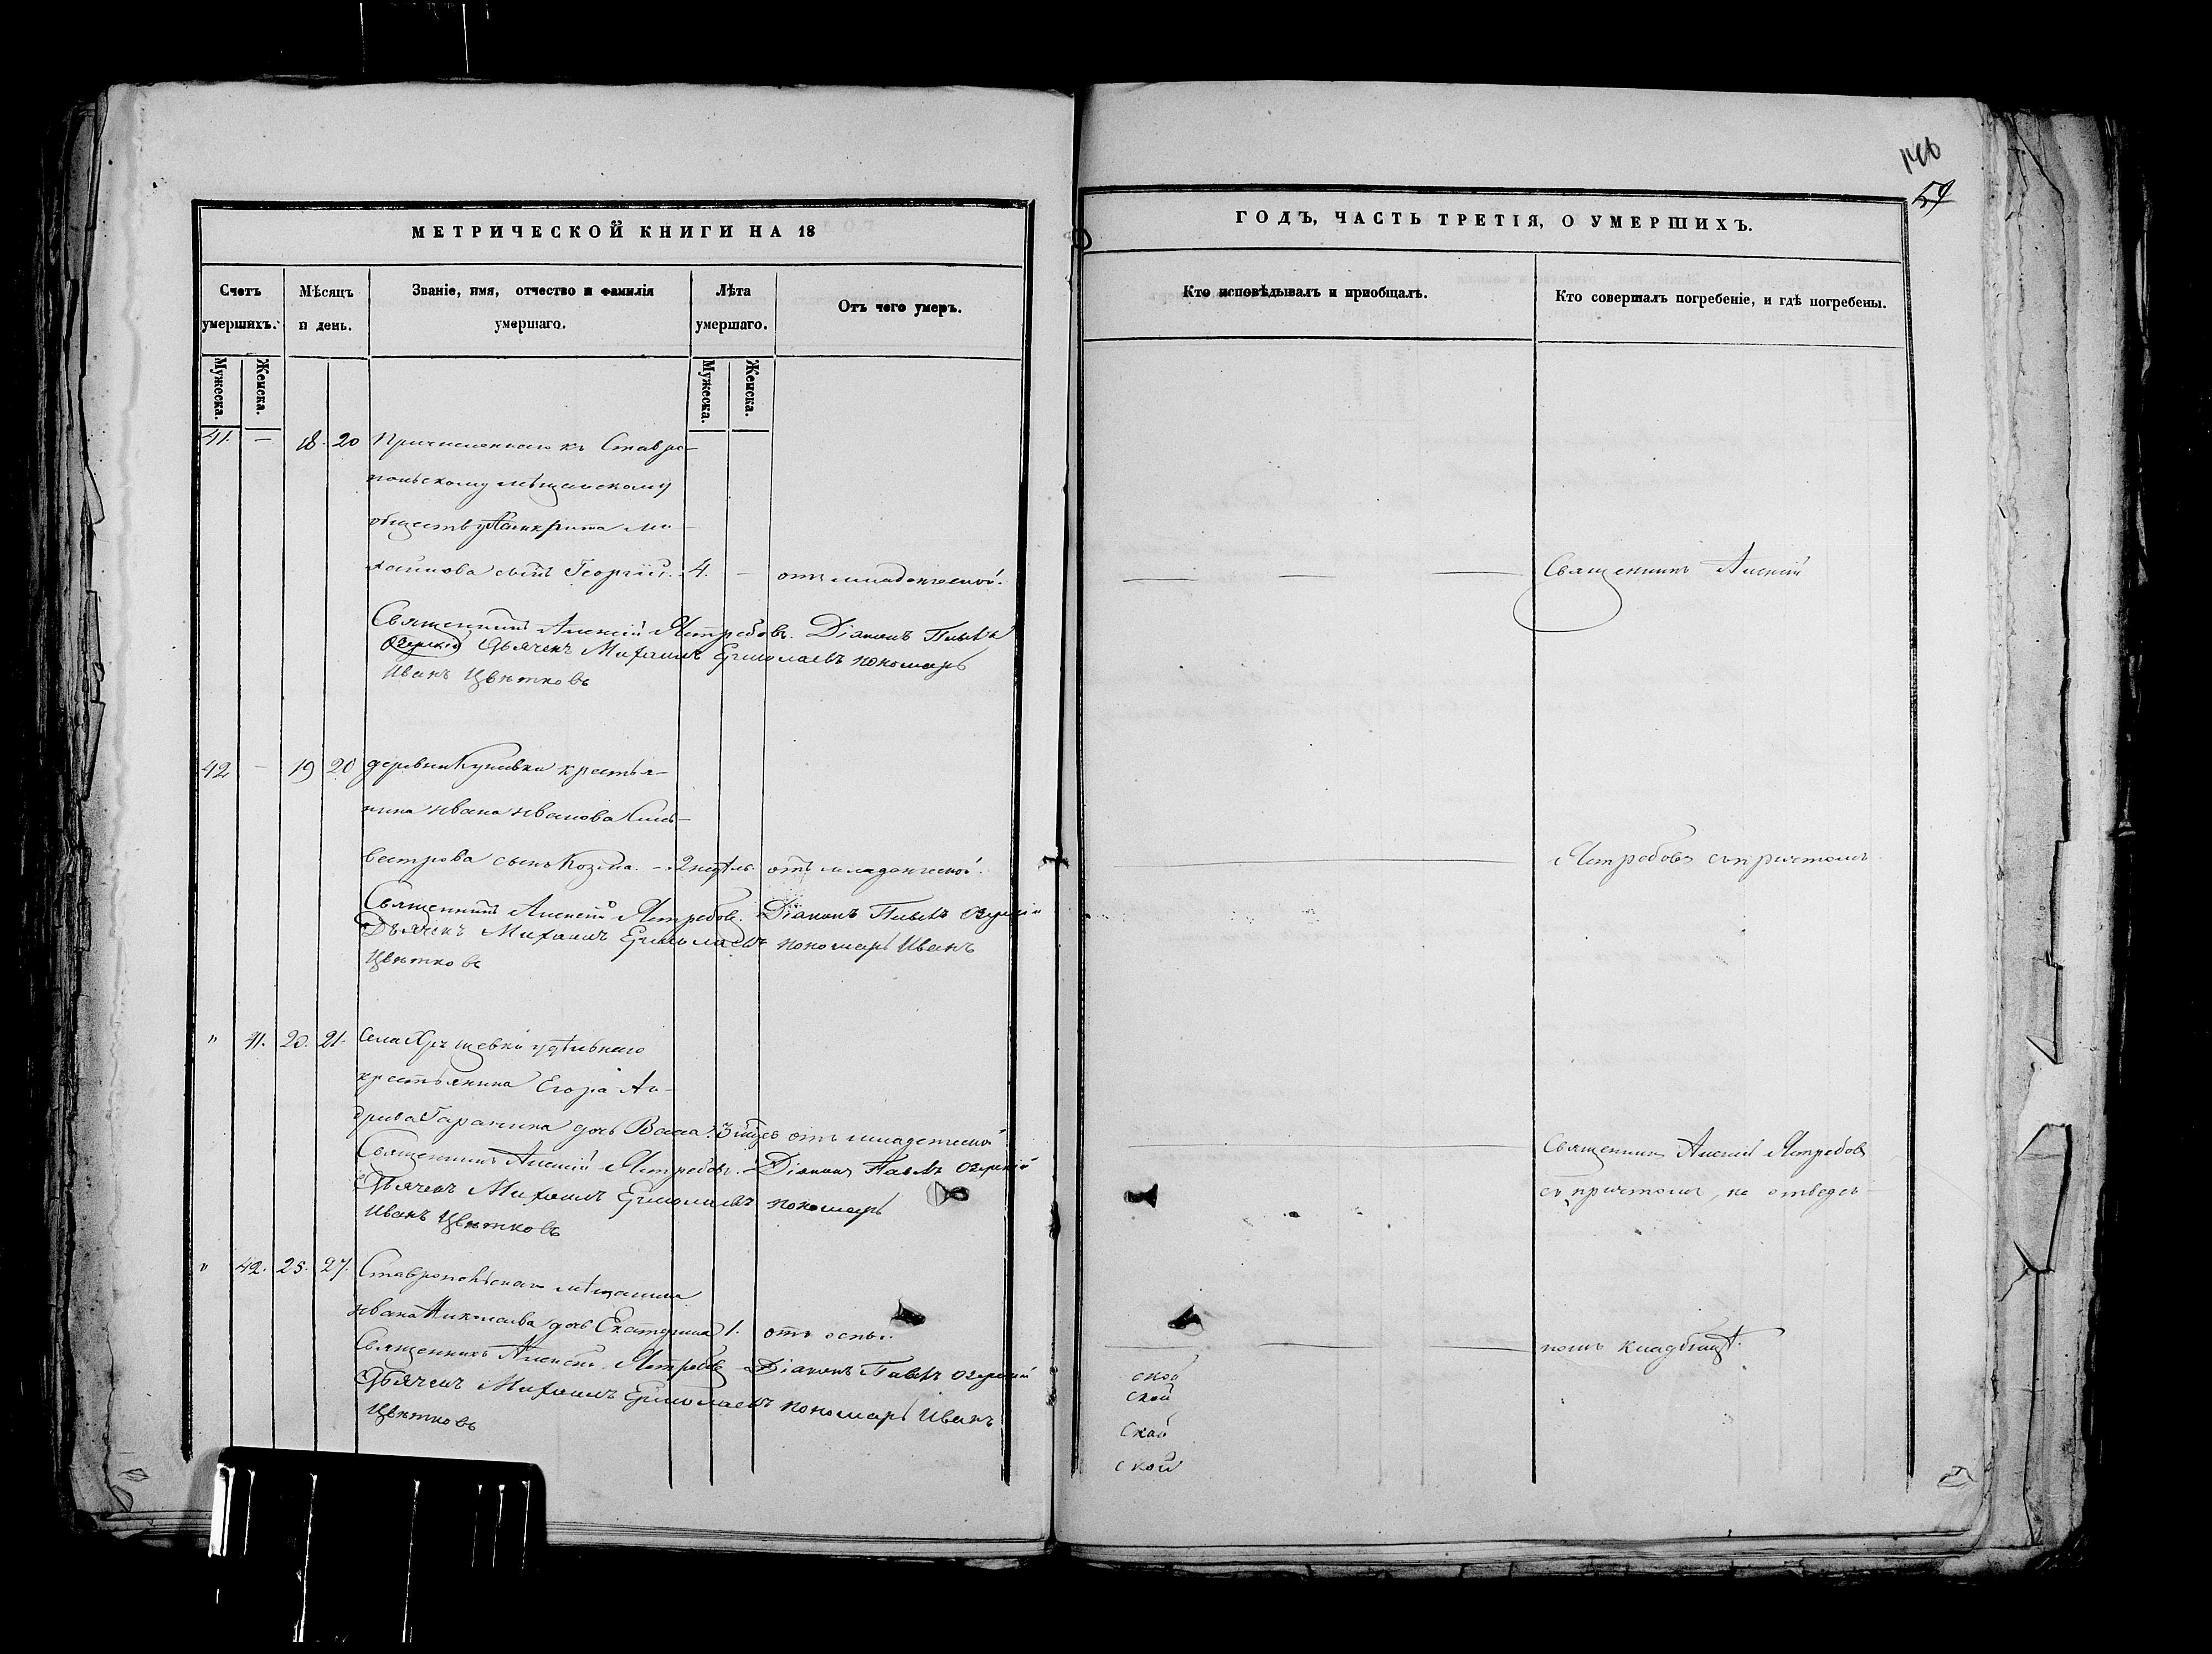 146
59
МЕТРИЧЕСКОЙ КНИГИ НА 18
ГОДЪ, ЧАСТЬ ТРЕТІЯ, О УМЕРШИХЪ.
Счетъ умершихъ.
Мѣсяцъ и день.
Званіе, имя, отчество и фамилія умершаго.
Лѣта умершаго.
Отъ чего умеръ.
Кто исповѣдывалъ и пріобщалъ.
Кто совершалъ погребеніе, и гдѣ погребены.
Мужеска. Женска.
Мужеска. Женска.
41. — 18. 20 Причисленнаго къ Ставро-
польскому мѣщанскому
обществу Ми-
хайлова сынъ Георгій. 4. — отъ младенческой.
Священникъ Алексій
Священникъ Алексій Ястребовъ. Діаконъ Павелъ
Озерскій Дьячекъ Михаилъ Ермолаевъ пономарь
Иванъ Цвѣтковъ
42 — 19 20 деревни Кунеевки крестья-
нина Ивана Иванова Силь-
вестрова сынъ Козма. — 2 недѣль. отъ младенческой.
Ястребовъ съ причтомъ
Священникъ Алексій Ястребовъ. Діаконъ Павелъ Озерскій
Дьячекъ Михаилъ Ермолаевъ пономарь Иванъ
Цвѣтковъ
" 41. 20. 21. Села Хрящевки удѣльнаго
крестьянина Егора Ан-
дреева Гаранина дочь Васса. 3 мѣс. отъ младенческой
Священникъ Алексій Ястребовъ
Священникъ Алексій Ястребовъ. Діаконъ Павелъ Озерскій
съ причтомъ, на отведен-
Дьячекъ Михаилъ Ермолаевъ пономарь
Иванъ Цвѣтковъ
" 42. 25. 27. Ставропольскаго мѣщанина
Ивана Николаева дочь Екатерина 1. отъ оспы.
номъ кладбищѣ.
Священникъ Алексій Ястребовъ Діаконъ Павелъ Озерскій
Дьячекъ Михаилъ Ермолаевъ пономарь Иванъ
Цвѣтковъ
ской
ской
ской
ской